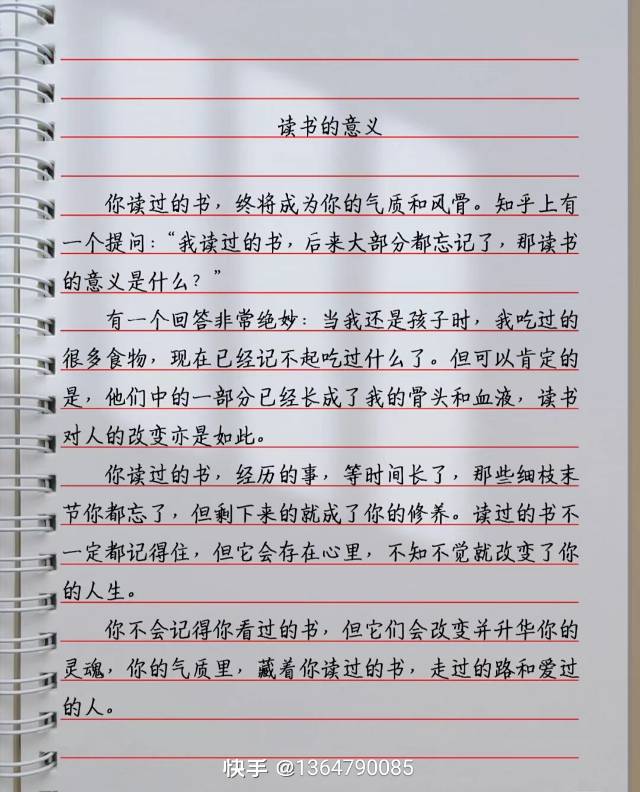 读书的意义
你读过的书，终将成为你的气质和风骨。知乎上有
一个提问：“我读过的书，后来大部分都忘记了，那读书
的意义是什么？”
有一个回答非常绝妙：当我还是孩子时，我吃过的
很多食物，现在已经记不起吃过什么了。但可以肯定的
是，他们中的一部分已经长成了我的骨头和血液，读书
对人的改变亦是如此。
你读过的书，经历的事，等时间长了，那些细枝末
节你都忘了，但剩下来的就成了你的修养。读过的书不
一定都记得住，但它会存在心里，不知不觉就改变了你
的人生。
你不会记得你看过的书，但它们会改变并升华你的
灵魂，你的气质里，藏着你读过的书，走过的路和爱过
的人。
快手 @1364790085